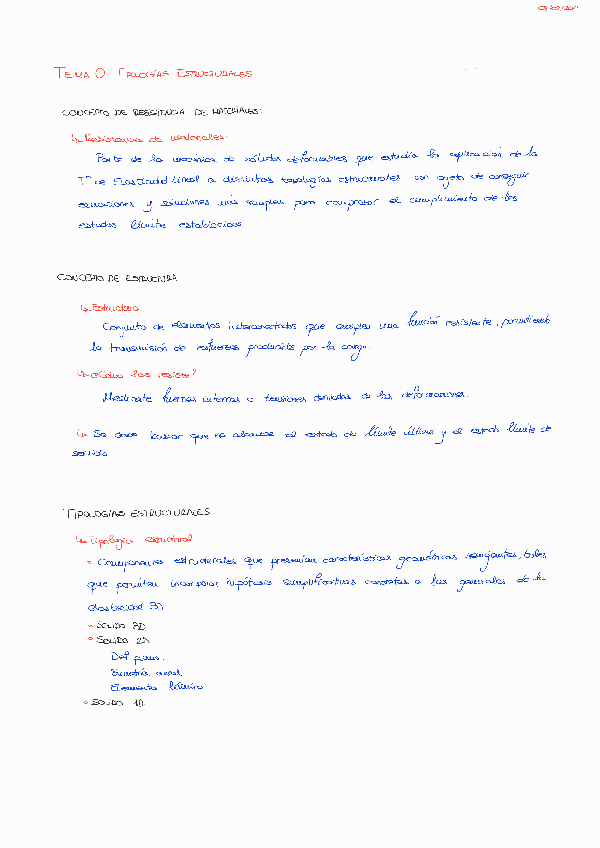 TEMA 0 TIPOLOGÍAS ESTRUCTURALES
CONCEPTO DE RESISTENCIA DE MATERIALES:
↳ Resistencia de materiales:
Parte de la mecánica de sólidos deformables que estudia la aplicación de la
Tª de Elasticidad Lineal a distintas topologías estructurales con objeto de conseguir
ecuaciones y soluciones más simples para comprobar el cumplimiento de los
estados límite establecidos
CONCEPTO DE ESTRUCTURA
↳ Estructura
Conjunto de elementos interconectados que cumplen una función resistente, permitiendo
la transmisión de esfuerzos producidos por la carga.
↳ ¿Cómo las resiste?
Mediante fuerzas internas o tensiones derivadas de las deformaciones.
↳ Se debe buscar que no alcance el estado de límite último y el estado límite de
servicio
TIPOLOGÍAS ESTRUCTURALES
↳ Tipología estructural
• Componentes estructurales que presentan características geométricas semejantes, tales
que permiten incorporar hipótesis simplificativas concretas a las generales de la
elasticidad 3D
• SÓLIDO 3D
• SÓLIDO 2D
Def plana.
Simetría axial
Elemento lámina
• SÓLIDO 1D